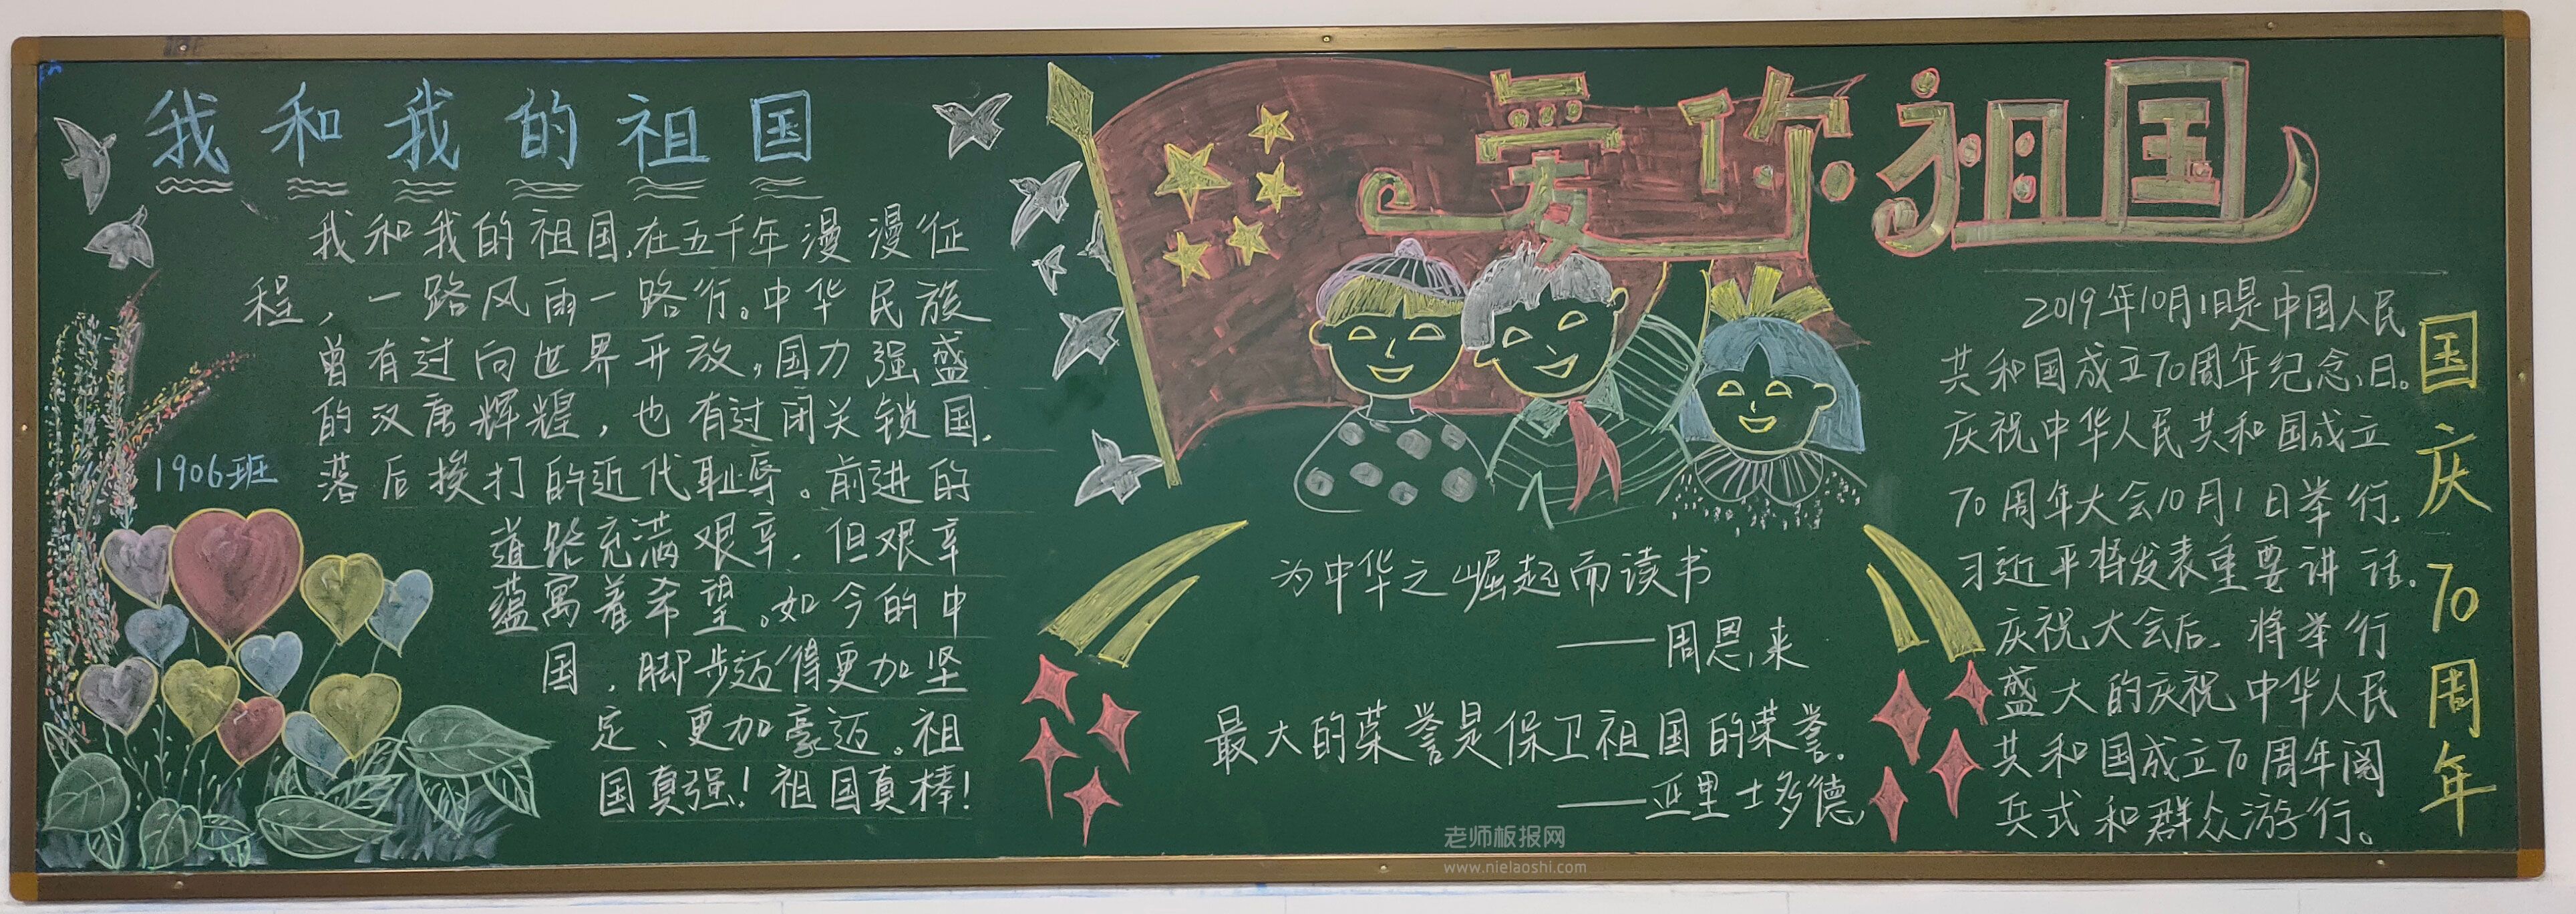 我和我的祖国
我和我的祖国,在五千年漫漫征
程，一路风雨一路行。中华民族
曾有过向世界开放,国力强盛
的汉唐辉煌，也有过闭关锁国,
落后挨打的近代耻辱。前进的
道路充满艰辛，但艰辛
蕴寓着希望。如今的中
国，脚步迈得更加坚
定、更加豪迈。祖
国真强！祖国真棒！
1906班
爱你祖国
为中华之崛起而读书
——周恩来
最大的荣誉是保卫祖国的荣誉。
——亚里士多德
2019年10月1日是中国人民
共和国成立70周年纪念日。
庆祝中华人民共和国成立
70周年大会10月1日举行,
习近平将发表重要讲话。
庆祝大会后，将举行
盛大的庆祝中华人民
共和国成立70周年阅
兵式和群众游行。
国庆70周年
老师板报网
www.nielaoshi.com